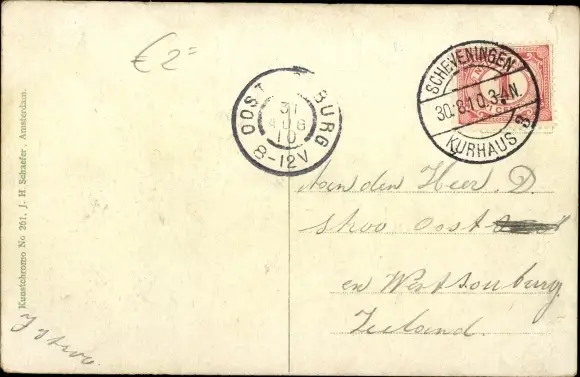 € 2=
OOSTBURG
31
AUG
10
8-12V
SCHEVENINGEN
30.8.10.3-4N.
KURHAUS 3
Kunstchromo No 261, J. H. Schaefer, Amsterdam.
Aan den Heer D.
stroo Oost
en West souburg
Zeeland.